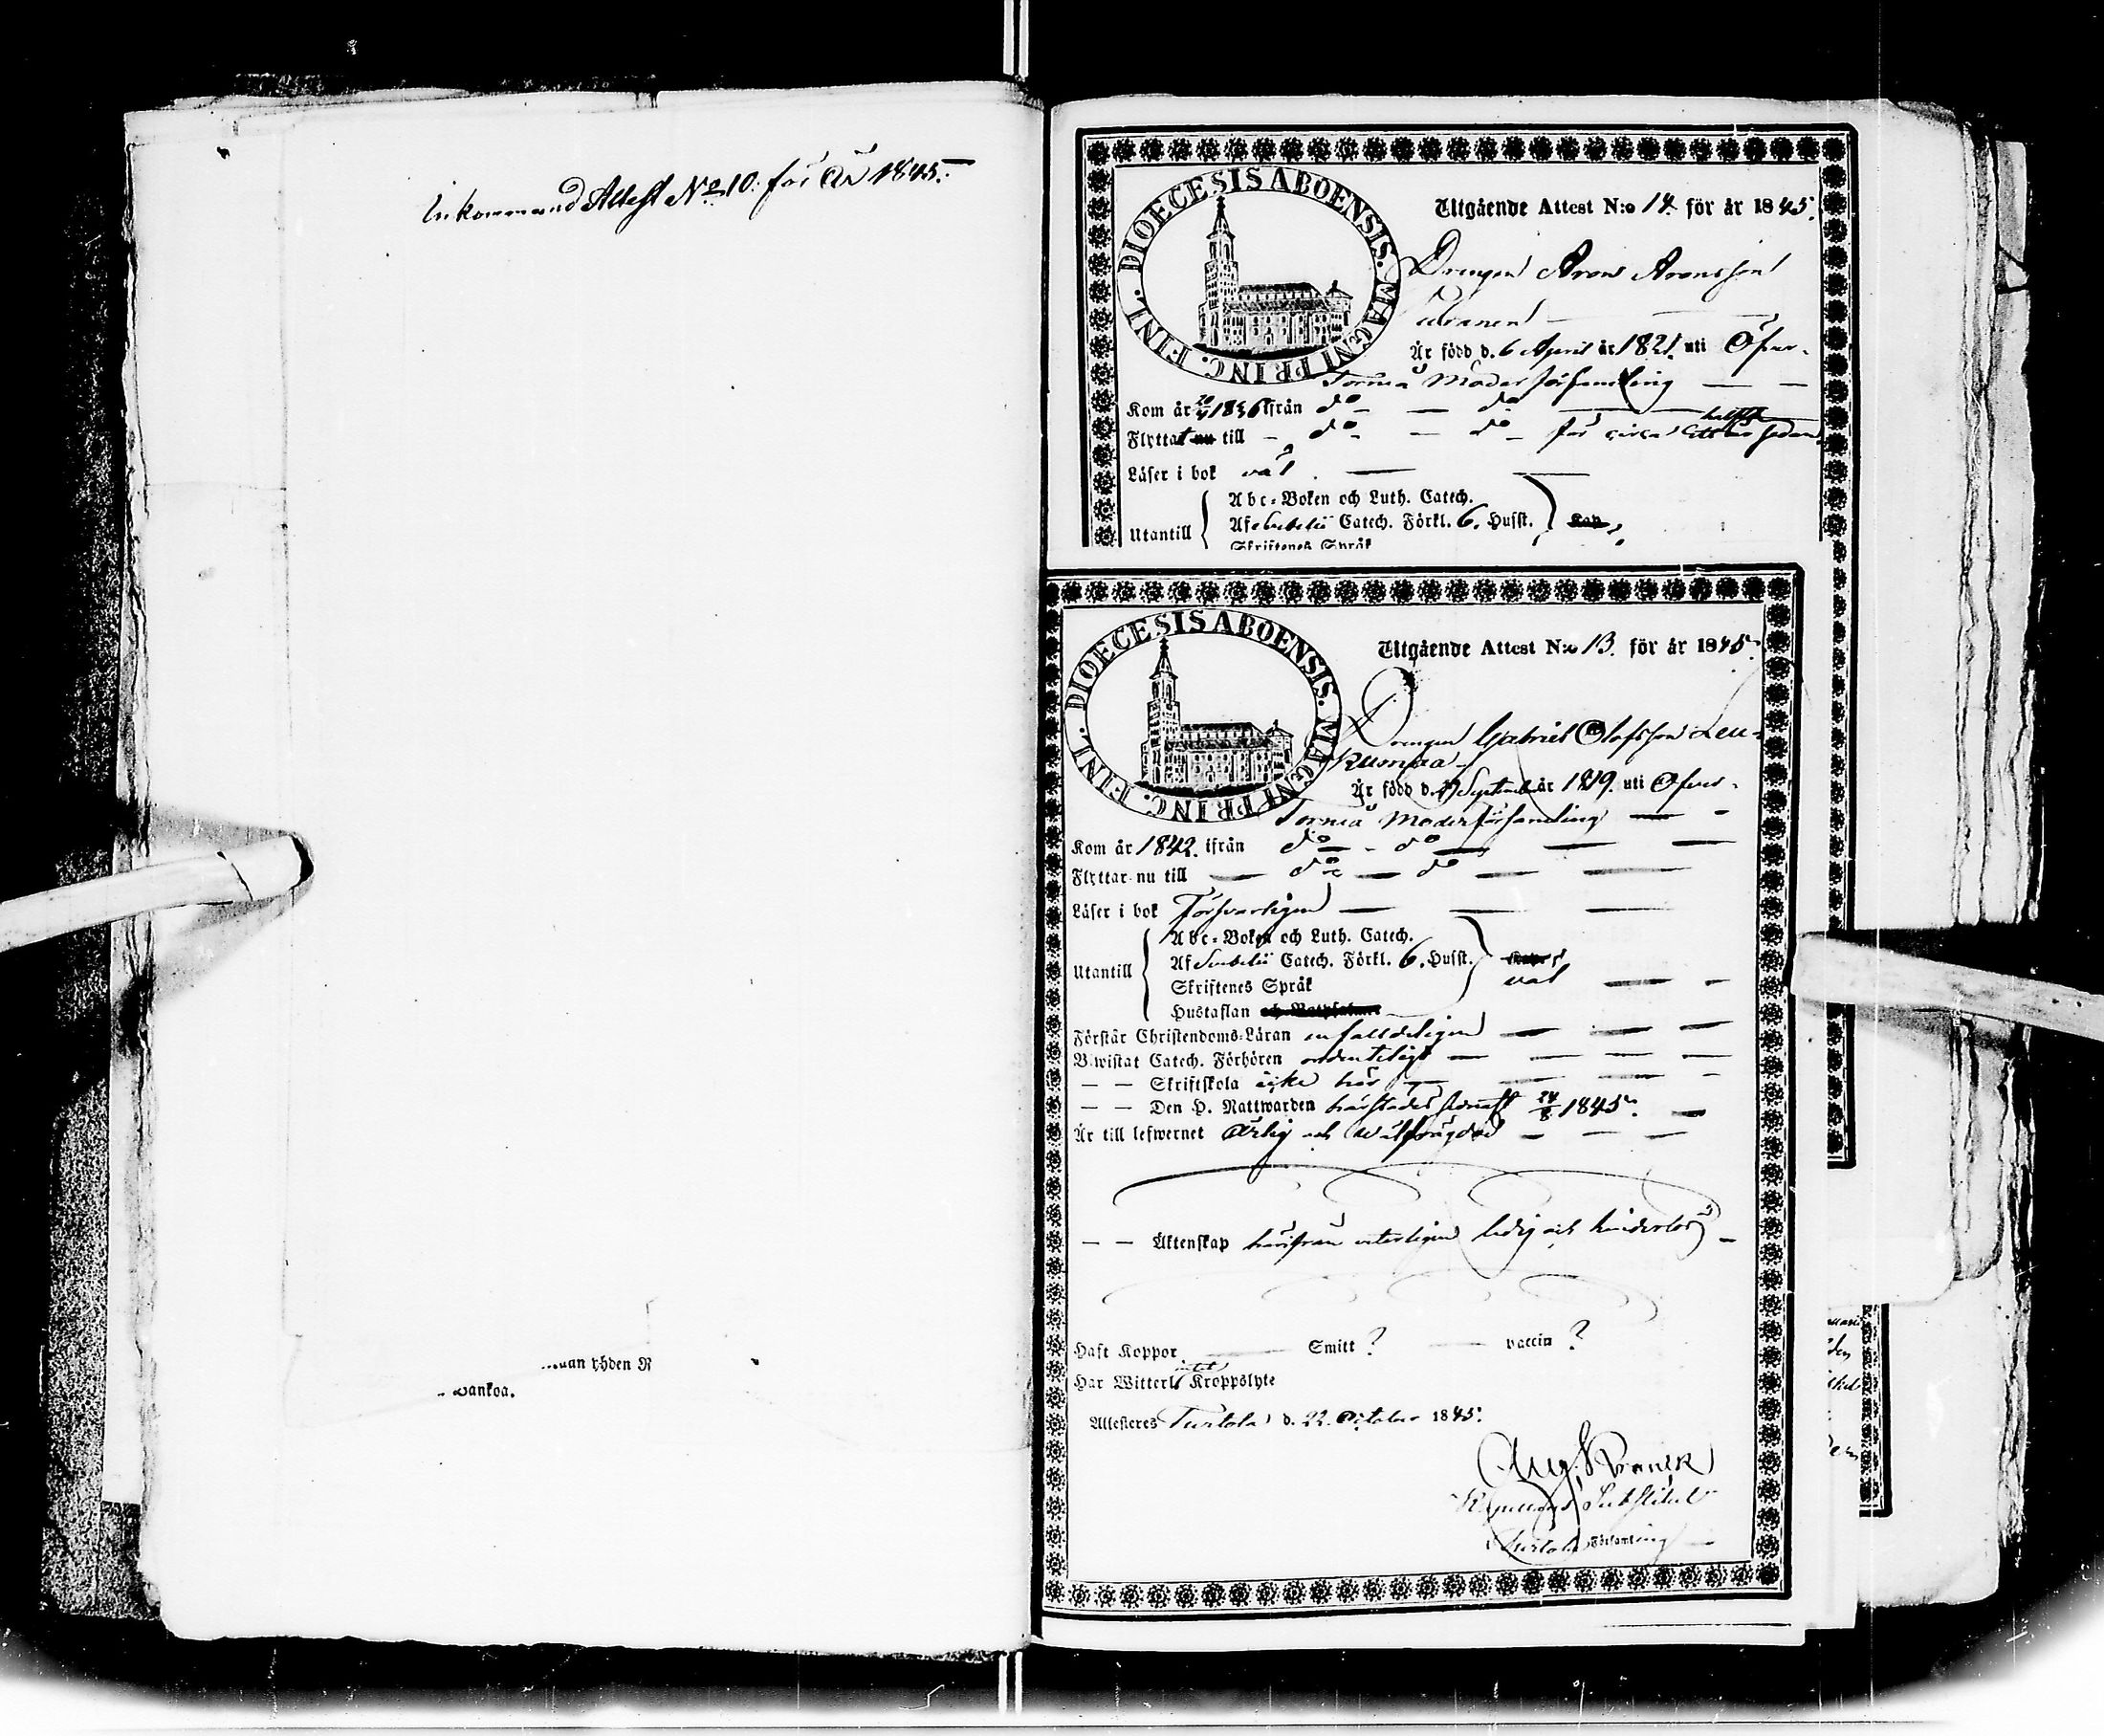 Inkommand Attest No 10. för År 1845.
...uan yhden R
Wankoa.
DIOECESIS ABOENSIS. MAGNI PRINC. FINL.
Utgående Attest N:o 14. för år 1845.
Drengen Aron Aronsson
Är född d. 6 April år 1821. uti Öfver-
Torneå Moderförsamling
Kom år 1836 ifrån do do
Flyttat nu till do do för circa ett halft år sedan
Läser i bok väl
Abc-Boken och Luth. Catech.
Utantill Af Swebelii Catech. Förkl. 6. Husst.
Skriftenes Språk
DIOECESIS ABOENSIS. MAGNI PRINC. FINL.
Utgående Attest N:o 13. för år 1845.
Drengen Gabriel Olofsson Leu-
kumaa
Är född d. September år 1819. uti Öfver-
Torneå Moderförsamling
Kom år 1842. ifrån do do
Flyttar nu till do do
Läser i bok försvarligen
Abc-Boken och Luth. Catech.
Utantill Af Swebelii Catech. Förkl. 6. Husst.
Skriftenes Språk väl
Hustaflan och
Förstår Christendoms-Läran enfalldeligen
Bewistat Catech. Förhören ordenteligt
— — Skriftskola icke här
— — Den H. Nattwarden härstädes sednast 24/8 1845.
Är till lefwernet ärlig och wälfrägdad
— — Äktenskap härifrån veterligen ledig och hinderlös
Haft Koppor Smitt ? vaccin ?
Har Witterl. intet Kroppslyte
Attesteres Turtola d. 22 October 1845.
Aug. Franck
Substitut
Turtola Församling